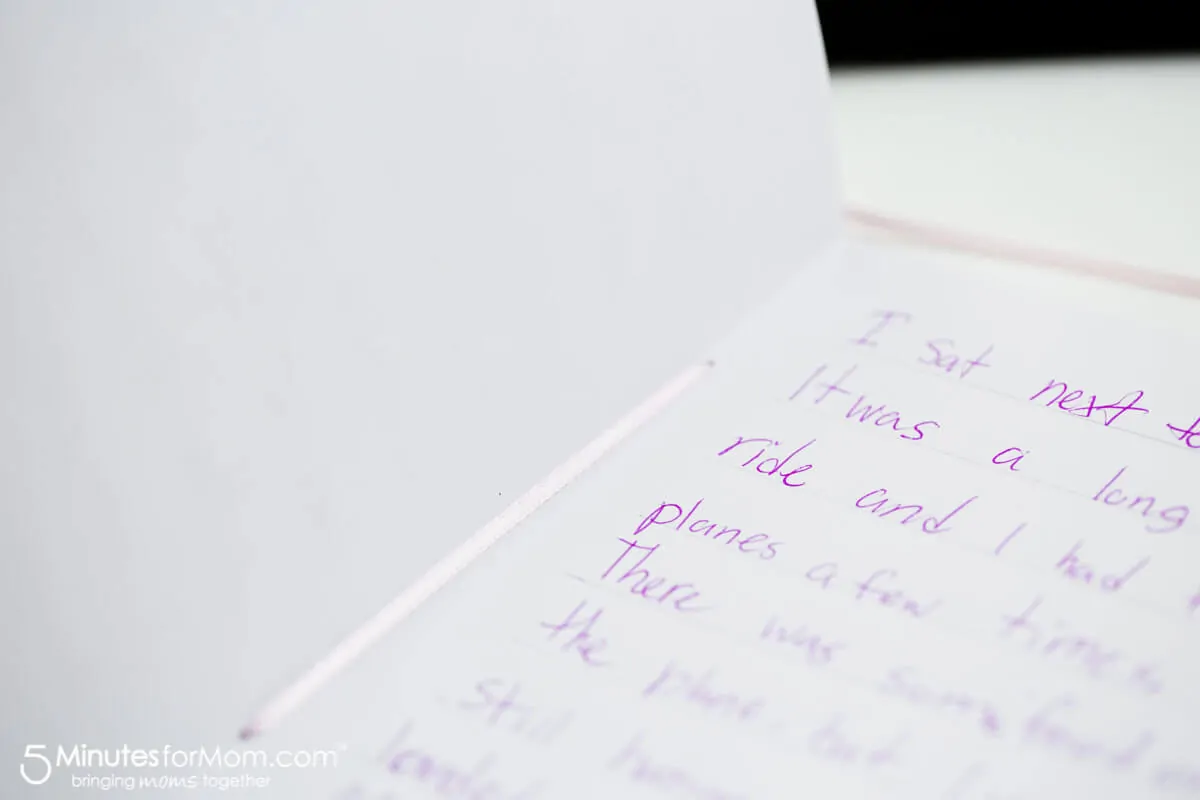 I sat next to
It was a long
ride and I had
planes a few times
There was some food
the plane. but
still
5MinutesforMom.com
bringing moms together